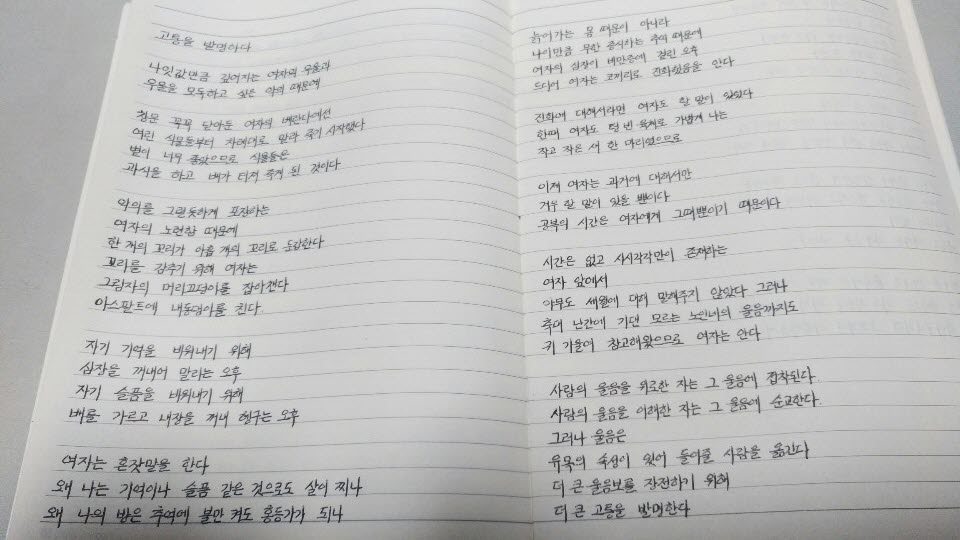 고통을 발명하다
나잇값만큼 깊어가는 여자의 우울과
우울을 모독하고 싶은 악의 때문에
창문 꼭꼭 닫아둔 여자의 베란다에선
여린 식물들부터 차례대로 말라 죽기 시작했다
볕이 너무 좋았으므로 식물들은
과식을 하고 배가 터져 죽게 된 것이다
악의를 그럴듯하게 포장하는
여자의 노련함 때문에
한 개의 꼬리가 아홉 개의 꼬리로 둔갑한다
꼬리를 감추기 위해 여자는
그림자의 머리끄덩이를 잡아챈다
아스팔트에 내동댕이를 친다
자기 기억을 비워내기 위해
심장을 꺼내어 말리는 오후
자기 슬픔을 비워내기 위해
배를 가르고 내장을 꺼내 헹구는 오후
여자는 혼잣말을 한다
왜 나는 기억이나 슬픔 같은 것으로도 살이 찌나
왜 나의 방은 추억에 불만 켜도 홍등가가 되나
늙어가는 몸 때문이 아니라
나이만큼 무한 증식하는 추억 때문에
여자의 심장이 비만증에 걸린 오후
드디어 여자는 코끼리로 진화했음을 안다
진화에 대해서라면 여자도 할 말이 있었다
한때 여자도 텅 빈 육체로 가볍게 나는
작고 작은 새 한 마리였으므로
이제 여자는 과거에 대해서만
겨우 할 말이 있을 뿐이다
공복의 시간은 여자에게 그때뿐이기 때문이다
시간은 없고 시시각각만이 존재하는
여자 앞에서
아무도 세월에 대해 말해주지 않았다 그러나
육교 난간에 기댄 모르는 노인네의 울음까지도
귀 기울여 참고해왔으므로 여자는 안다
사람의 울음을 위로한 자는 그 울음에 접착된다
사람의 울음을 이해한 자는 그 울음에 순교한다
그러나 울음은
유목의 속성이 있어 들어줄 사람을 옮긴다
더 큰 울음보를 장전하기 위해
더 큰 고통을 발명한다